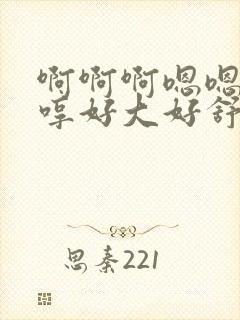 啊啊啊嗯嗯
哼好大好舒
思秦221